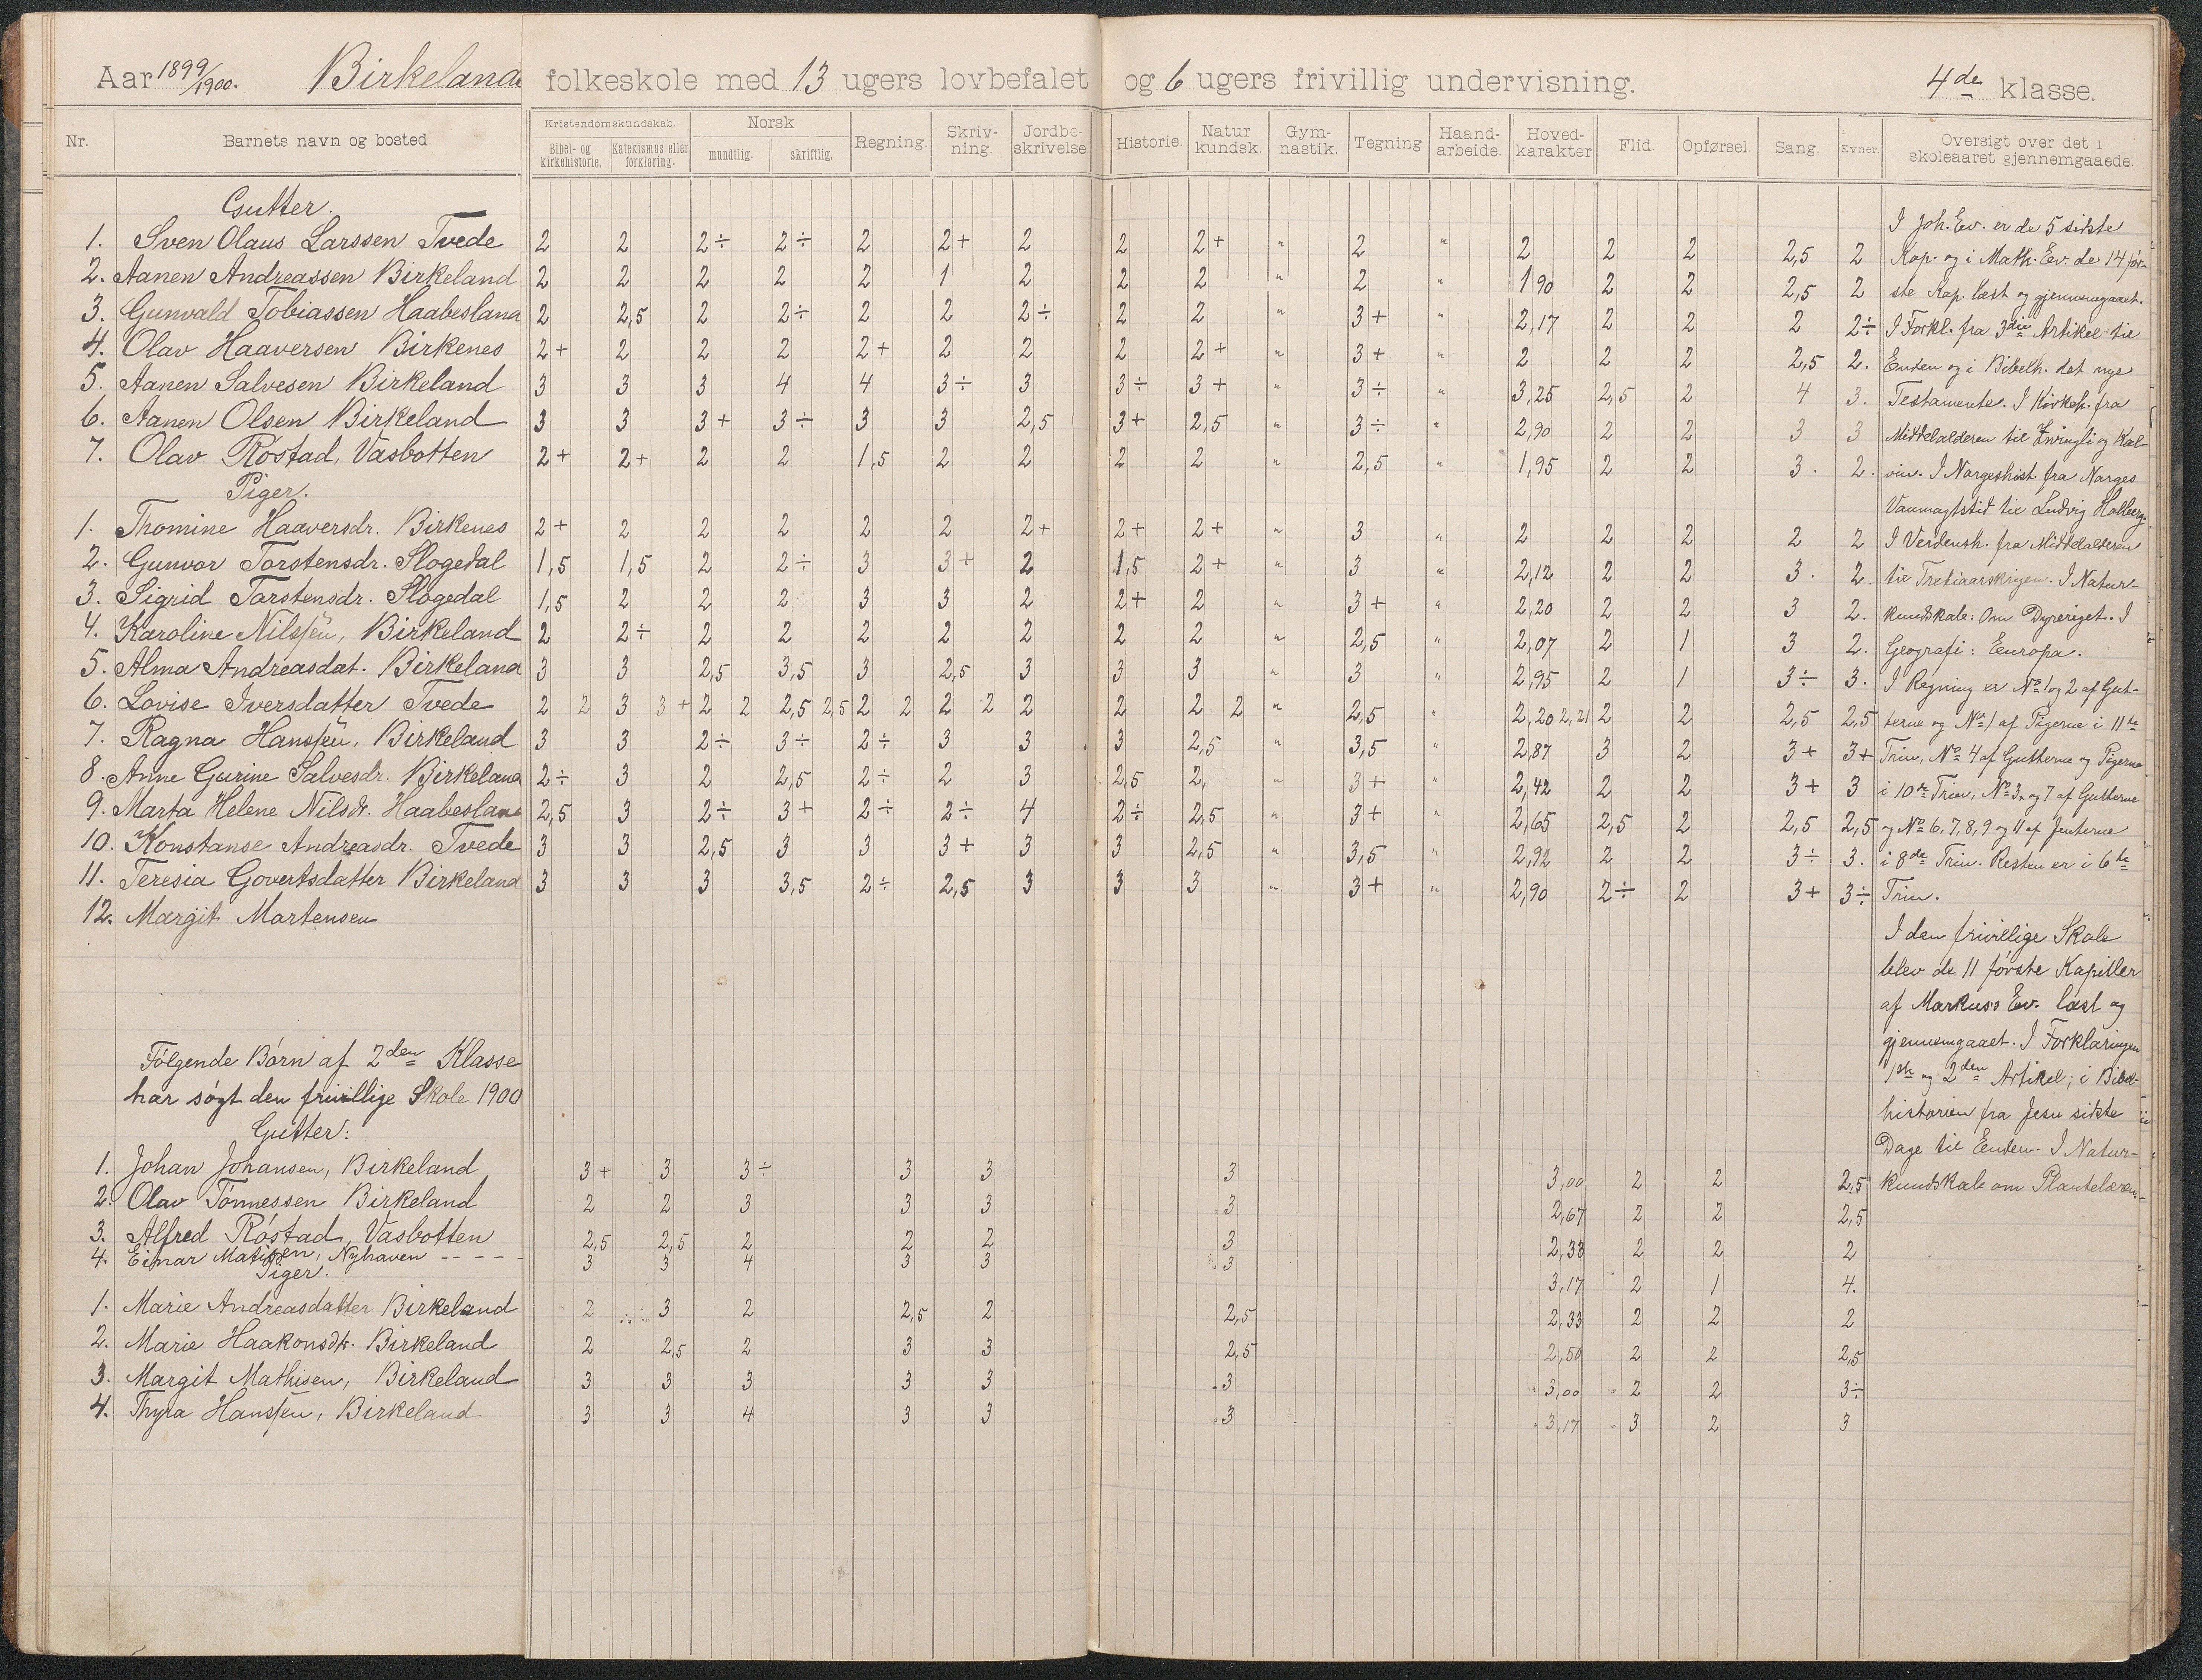 Aar 1899/1900. Birkeland folkeskole med 13 ugers lovbefalet og 6 ugers frivillig undervisning. 4de klasse.
Nr. Barnets navn og bosted. Kristendomskundskab. Bibel- og kirkehistorie. Katekismus eller forklaring. Norsk mundtlig. skriftlig. Regning. Skriv-ning. Jordbe-skrivelse. Historie. Natur kundsk. Gym-nastik. Tegning Haand-arbeide. Hoved-karakter Flid. Opførsel. Sang. Evner. Oversigt over det i skoleaaret gjennemgaaede.
Gutter.
1. Sven Olaus Larssen Tvede 2 2 2÷ 2÷ 2 2+ 2 2 2+ " 2 " 2 2 2 2,5 2
2. Aanen Andreassen Birkeland 2 2 2 2 2 1 2 2 2 " 2 " 1,90 2 2 2,5 2
3. Gunvald Tobiassen Haabesland 2 2,5 2 2÷ 2 2 2÷ 2 2 " 3+ " 2,17 2 2 2 2÷
4. Olav Haaversen Birkenes 2+ 2 2 2 2+ 2 2 2 2+ " 3+ " 2 2 2 2,5 2.
5. Aanen Salvesen Birkeland 3 3 3 4 4 3÷ 3 3÷ 3+ " 3÷ " 3,25 2,5 2 4 3.
6. Aanen Olsen Birkeland 3 3 3+ 3÷ 3 3 2,5 3+ 2,5 " 3÷ " 2,90 2 2 3 3
7. Olav Røstad, Vasbotten 2+ 2+ 2 2 1,5 2 2 2 2 " 2,5 " 1,95 2 2 3. 2.
Piger.
1. Thomine Haaversdr. Birkenes 2+ 2 2 2 2 2 2+ 2+ 2+ " 3 " 2 2 2 2 2
2. Gunvor Torstensdr. Slogedal 1,5 1,5 2 2÷ 3 3+ 2 1,5 2+ " 3 " 2,12 2 2 3. 2.
3. Sigrid Torstensdr. Slogedal 1,5 2 2 2 3 3 2 2+ 2 " 3+ " 2,20 2 2 3 2.
4. Karoline Nilssen, Birkeland 2 2÷ 2 2 2 2 2 2 2 " 2,5 " 2,07 2 1 3 2.
5. Alma Andreasdat. Birkeland 3 3 2,5 3,5 3 2,5 3 3 3 " 3 " 2,95 2 1 3÷ 3.
6. Lovise Iversdatter Tvede 2 2 3 3+ 2 2 2,5 2,5 2 2 2 2 2 2 2 2 " 2,5 " 2,20 2,21 2 2 2,5 2,5
7. Ragna Hanssen, Birkeland 3 3 2÷ 3÷ 2÷ 3 3 3 2,5 " 3,5 " 2,87 3 2 3+ 3+
8. Anne Gurine Salvesdr. Birkeland 2÷ 3 2 2,5 2÷ 2 3 2,5 2, " 3+ " 2,42 2 2 3+ 3
9. Marta Helene Nilsdr. Haabesland 2,5 3 2÷ 3+ 2÷ 2÷ 4 2÷ 2,5 " 3+ " 2,65 2,5 2 2,5 2,5
10. Konstanse Andreasdr. Tvede 3 3 2,5 3 3 3+ 3 3 2,5 " 3,5 " 2,92 2 2 3÷ 3.
11. Teresia Govertsdatter Birkeland 3 3 3 3,5 2÷ 2,5 3 3 3 " 3+ " 2,90 2÷ 2 3+ 3÷
12. Margit Martensen
Følgende Børn af 2den Klasse
har søgt den frivillige Skole 1900
Gutter:
1. Johan Johansen, Birkeland 3+ 3 3÷ 3 3 3 3,00 2 2 2,5
2. Olav Tønnessen Birkeland 2 2 3 3 3 3 2,67 2 2 2,5
3. Alfred Røstad, Vasbotten 2,5 2,5 2 2 2 3 2,33 2 2 2
4. Einar Matisen, Nyhaven - - - - 3 3 4 3 3 3 3,17 2 1 4.
Piger.
1. Marie Andreasdatter Birkeland 2 3 2 2,5 2 2,5 2,33 2 2 2
2. Marie Haakonsdtr. Birkeland 2 2,5 2 3 3 2,5 2,50 2 2 2,5
3. Margit Mathisen, Birkeland 3 3 3 3 3 3 3,00 2 2 3÷
4. Thyra Hanssen, Birkeland 3 3 4 3 3 3 3,17 3 2 3
I Joh. Ev. er de 5 sidste
Kap. og i Math. Ev. de 14 før-
ste Kap. læst og gjennemgaaet.
I Forkl. fra 3die Artikel til
Enden og i Bibelh. det nye
Testamente. I Kirkeh. fra
Middelalderen til Zwingli og Kal-
vin. I Norgeshist. fra Norges
Vanmagtstid til Ludvig Holberg.
I Verdensh. fra Middelalderen
til Trediaarskrigen. I Natur-
kundskab: Om Dyreriget. I
Geografi: Europa.
I Regning er No 1 og 2 af Gut-
terne og No 1 af Pigerne i 11te
Trin, No 4 af Gutterne og Pigerne
i 10de Trin, No 3 og 7 af Gutterne
og No 6, 7, 8, 9 og 11 af Jenterne
i 8de Trin. Resten er i 6te
Trin.
I den frivillige Skole
blev de 11 første Kapitler
af Markus's Ev. læst og
gjennemgaaet. I Forklaringen
1ste og 2den Artikel; i Bibel-
historien fra Jesu sidste
Dage til Enden. I Natur-
kundskab om Plantelæren.